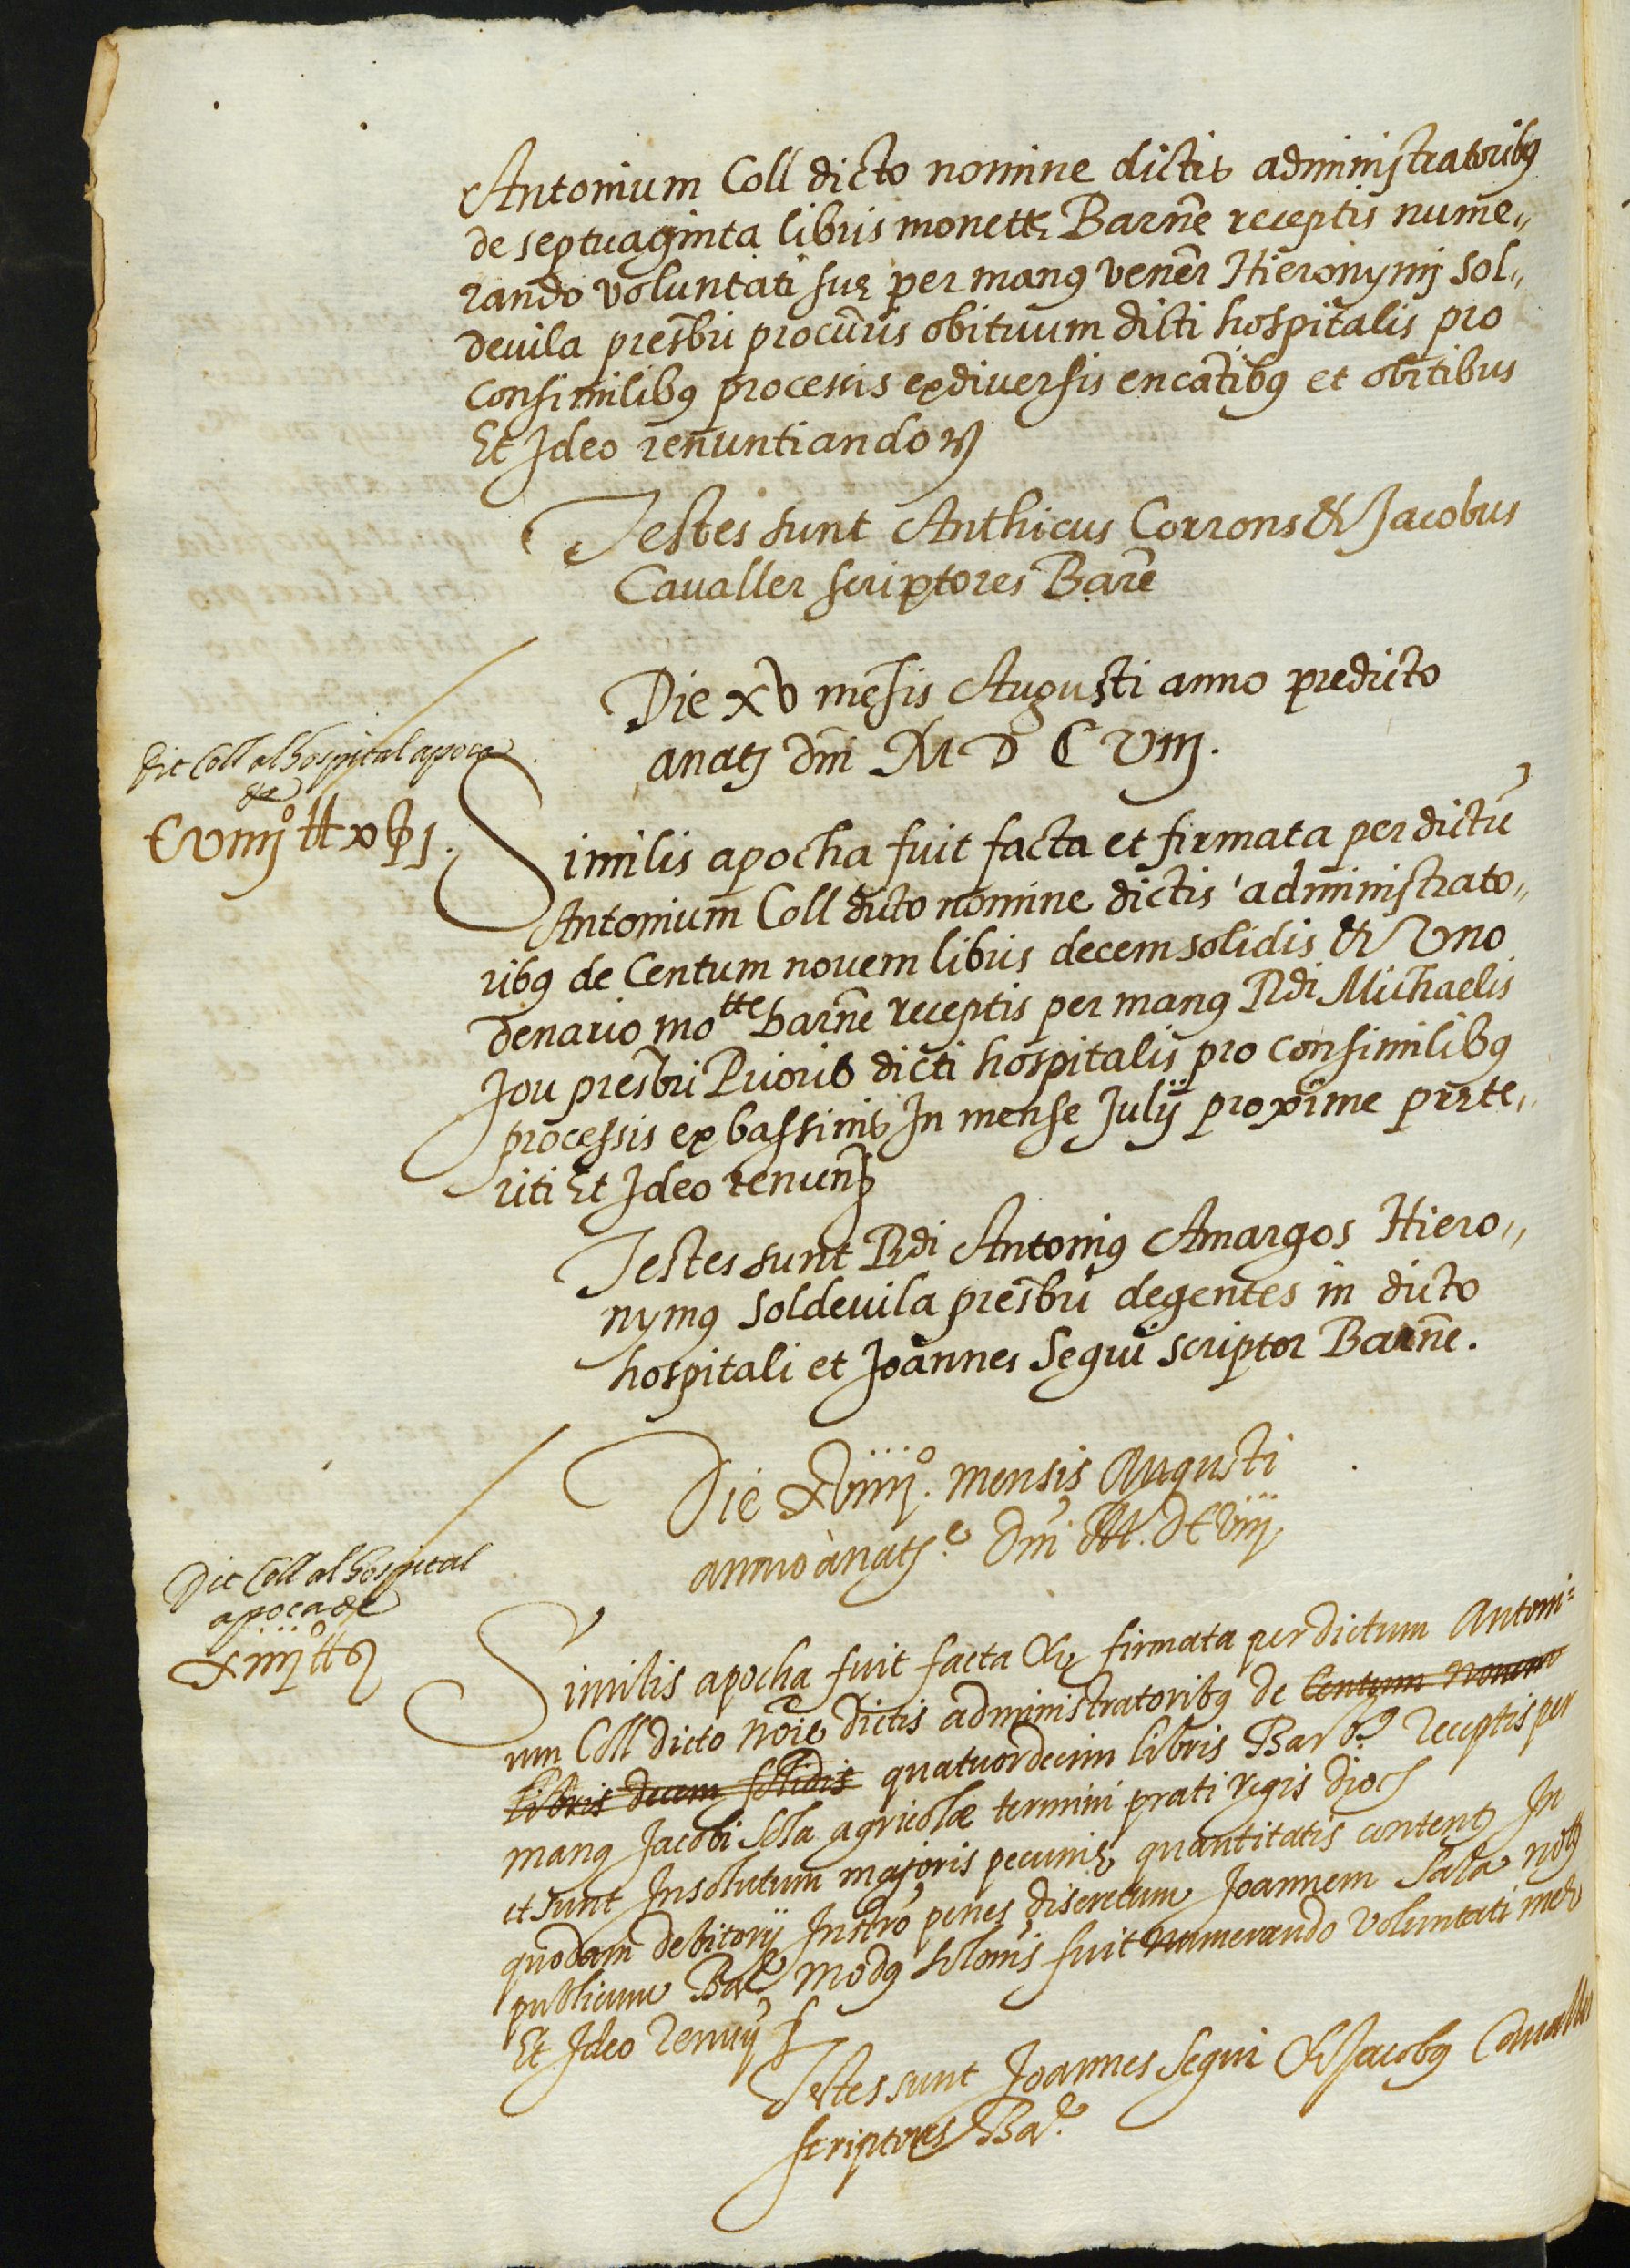 Antonium Coll dicto nomine dictis administratoribꝰ
de septuaginta libris monettę Barnẽ receptis nume„
rando voluntati suę per manꝰ venẽr Hieronymi sol„
devila presbri procuris obituum dicti hospitalis pro
consimilibꝰ processis ex diversis encãtibꝰ et obitibus
Et Ideo renuntiando
Testes sunt Anthicus Corrons & Jacobus
Cavaller scriptores Barẽ
Die xv mẽsis Augusti anno predicto
anatꝫ dm̃ M D C VIII.
Dit Coll al hospital apoca
de
CVIIII º ₶ x ß 1.
Similis apocha fuit facta et firmata per dictũ
Antonium Coll dicto nomine dictis administrato„
ribꝰ de Centum novem libris decem solidis & Uno
denario mottẽ barñe receptis per manꝰ Rdi Michaelis
Jou presbri Prioris dicti hospitalis pro consimilibꝰ
processis ex bassinis In mense Julij proxime prete„
riti Et Ideo renun
Testes sunt Rdi Antoniꝰ Amargos Hiero„
nymꝰ Soldevila presbri degentes in dicto
hospitali et Joannes Segui scriptor Barñe.
Die XVIIIIº. mensis Augusti
anno à natꝫ.e Dm̃ M. DCVIII.
Dit Coll al hospital
apoca de
XIIIIº ₶
Similis apocha fuit facta & firmata per dictum Antoni=
um Coll dicto noĩe dictis administratoribꝰ de Centum novem
libris decem solidis quatuordecim libris Bar receptis per
manꝰ Jacobi Sola agricolæ termini prati regis dioc
et sunt Insolutum majoris pecunię quantitatis contentꝫ In
quodam debitorij Instrõ penes discretum Joannem Sala notꝫ
publicum Bar modꝰ solonis fuit numerando voluntati meę
Et Ideo renuñ
Testes sunt Joannes Segui & Jacobꝰ Cavaller
scriptores Bar.